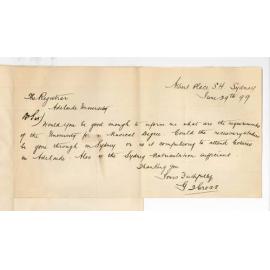 Albert Place S.H. Sydney
June 29th 99
The Registrar
Adelaide University
D Sir/
Would you be good enough to inform me what are the requirements
of the University for a Musical Degree. Could the necessary
be gone through in Sydney or is it compulsory to attend lectures
in Adelaide. Also is the Sydney Matriculation sufficient
Thanking you
Yours Faithfully
G Cross